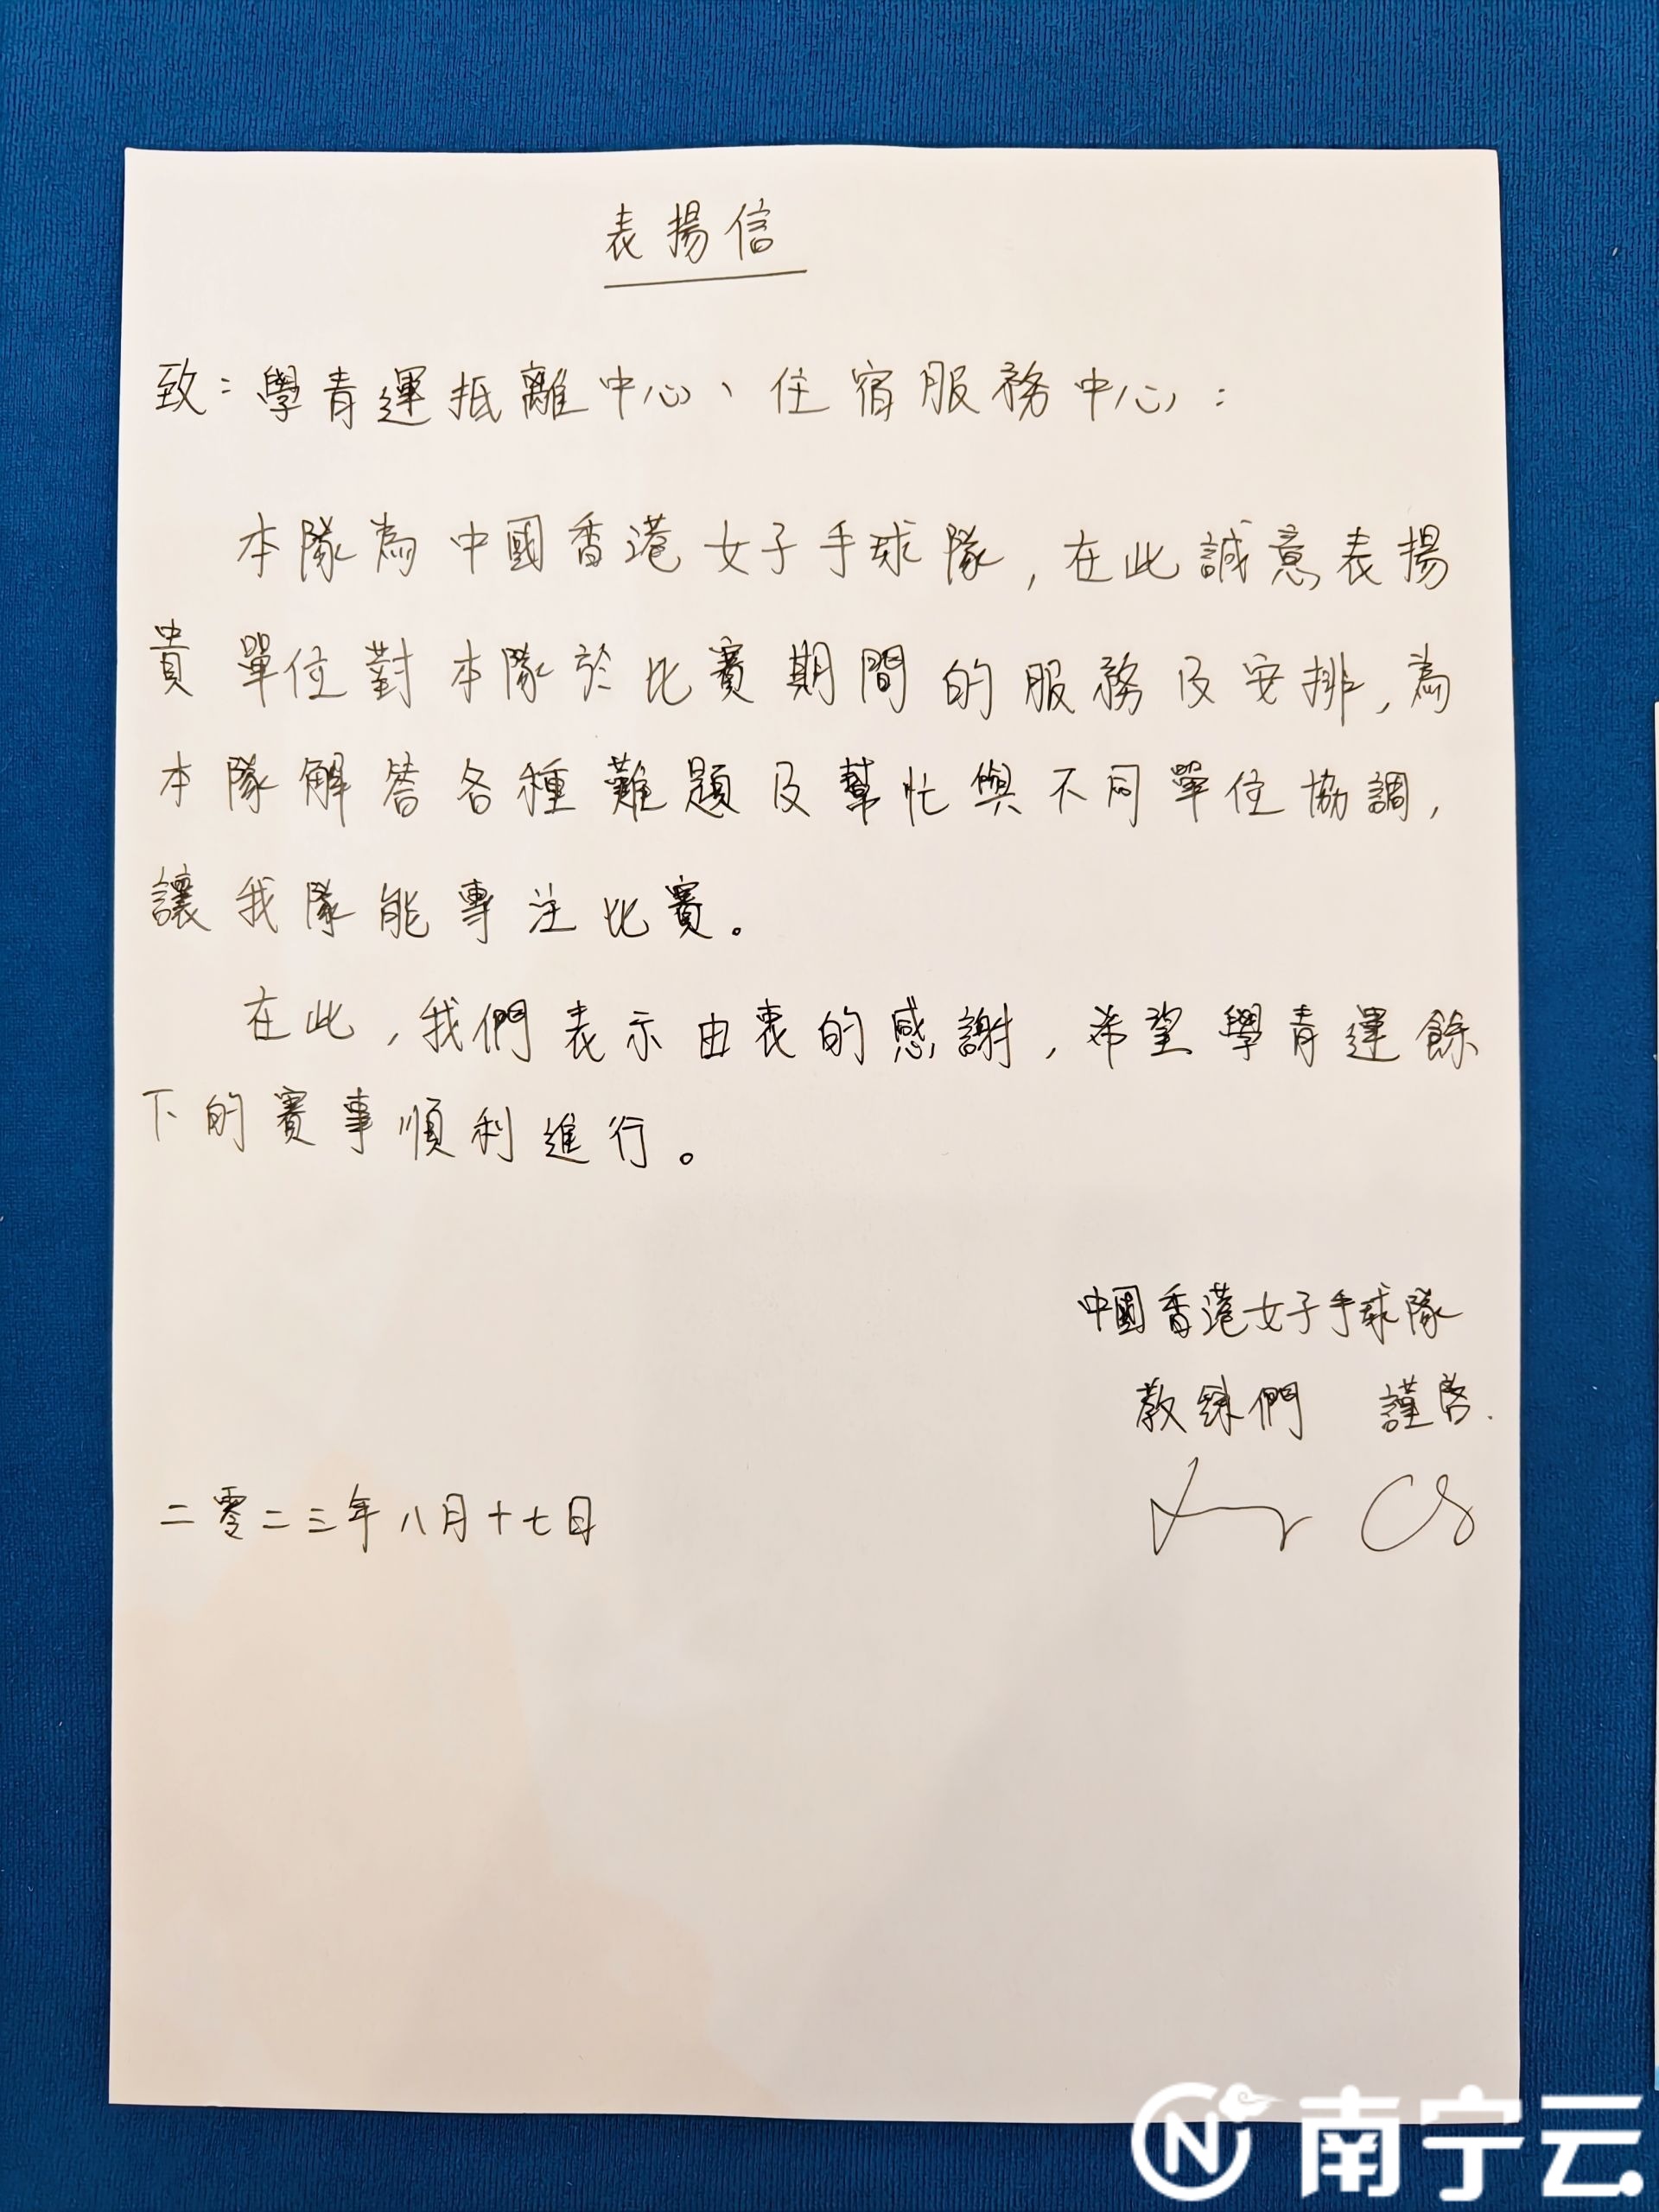 表揚信
致：學青運抵離中心、住宿服務中心：
本隊為中國香港女子手球隊，在此誠意表揚
貴單位對本隊於比賽期間的服務及安排，為
本隊解答各種難題及幫忙與不同單位協調，
讓我隊能專注比賽。
在此，我們表示由衷的感謝，希望學青運餘
下的賽事順利進行。
中國香港女子手球隊
教練們 謹啓.
二零二三年八月十七日
南宁云